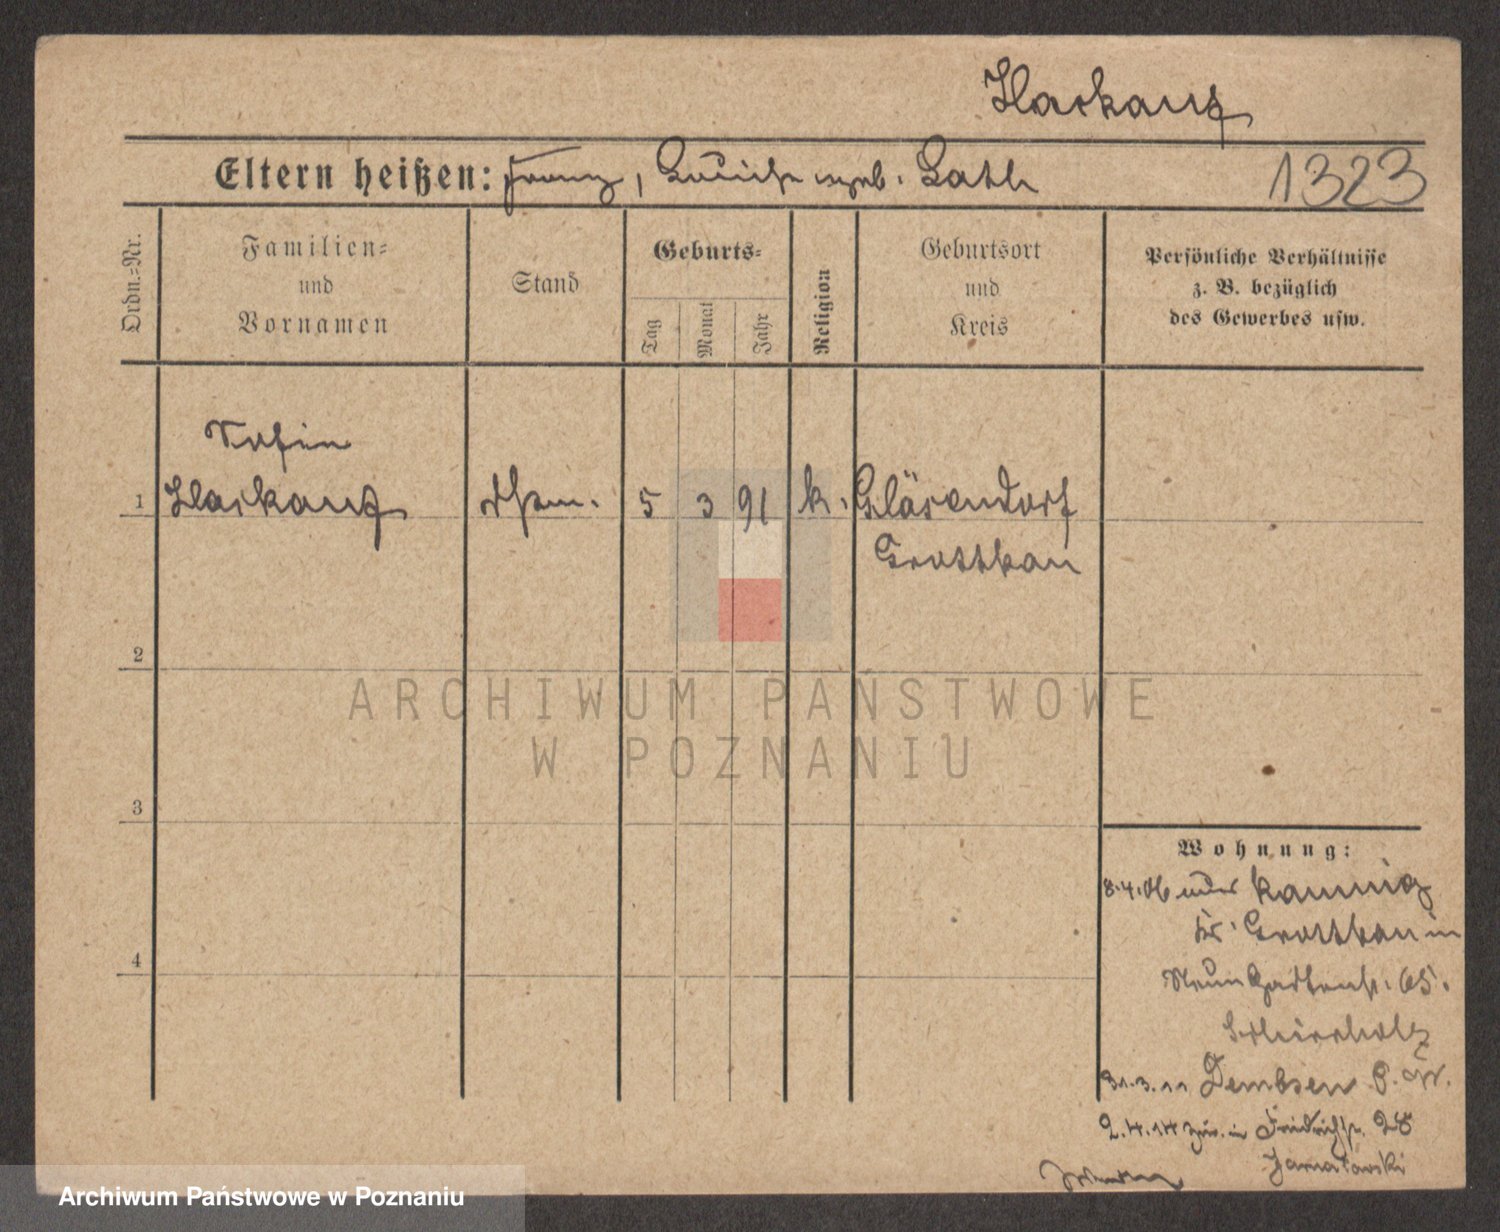 Haskamp
Eltern heißen: Franz, Luise geb. Lath
1323
Ordn.=Nr.
Familien=
und
Vornamen
Stand
Geburts=
Tag
Monat
Jahr
Religion
Geburtsort
und
Kreis
Persönliche Verhältnisse
z. B. bezüglich
des Gewerbes usw.
1
5 3 91 k. Gläsendorf
Grottkau
2
3
4
Wohnung:
8.4.06 Kamnig
Kr. Grottkau in
Neue Gartenstr. 65.
31.3.11 Dembsen
2.4.14 zur. in Friedrichstr. 28
ARCHIWUM PAŃSTWOWE
W POZNANIU
Archiwum Państwowe w Poznaniu